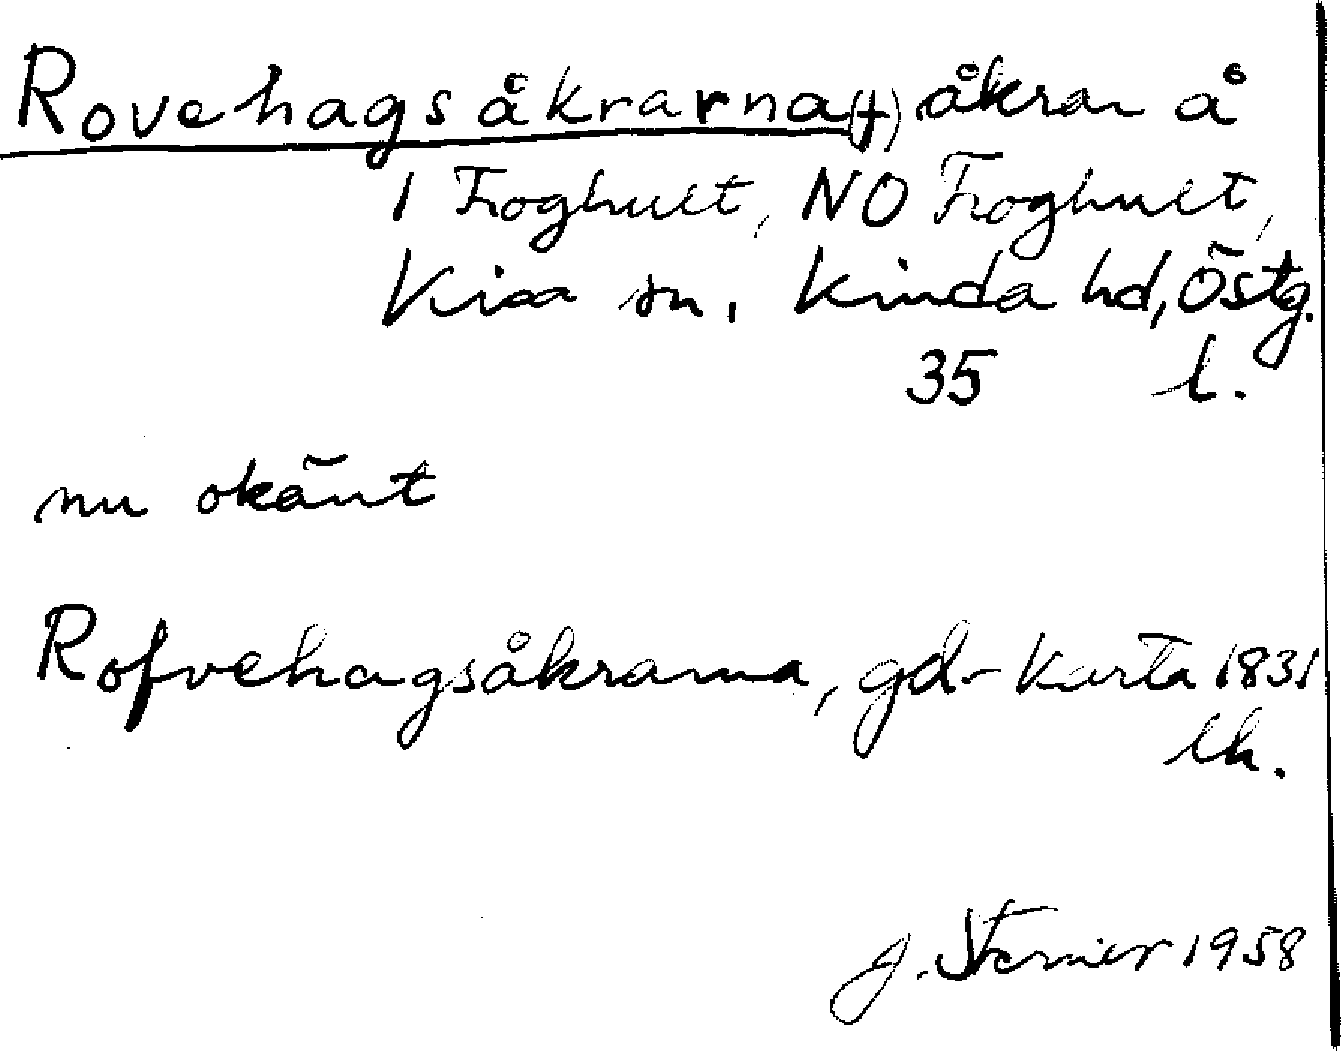 Rovehagsåkrarna(†) åkrar å
1 Froghult, NO Froghult,
Kisa sn, Kinda hd, Östg.
35 l.
nu okänt
Rofvehagsåkrarna, gd-Karta 1831
lk.
J. Sterner 1958